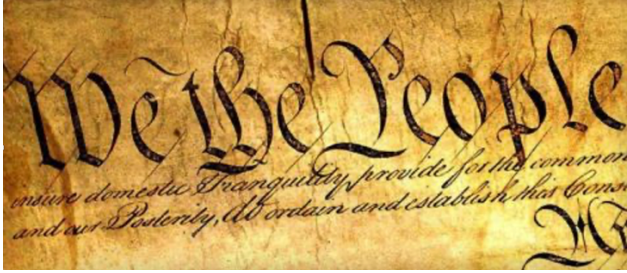 We the People
insure domestic Tranquility, provide for the common
and our Posterity, do ordain and establish this Cons